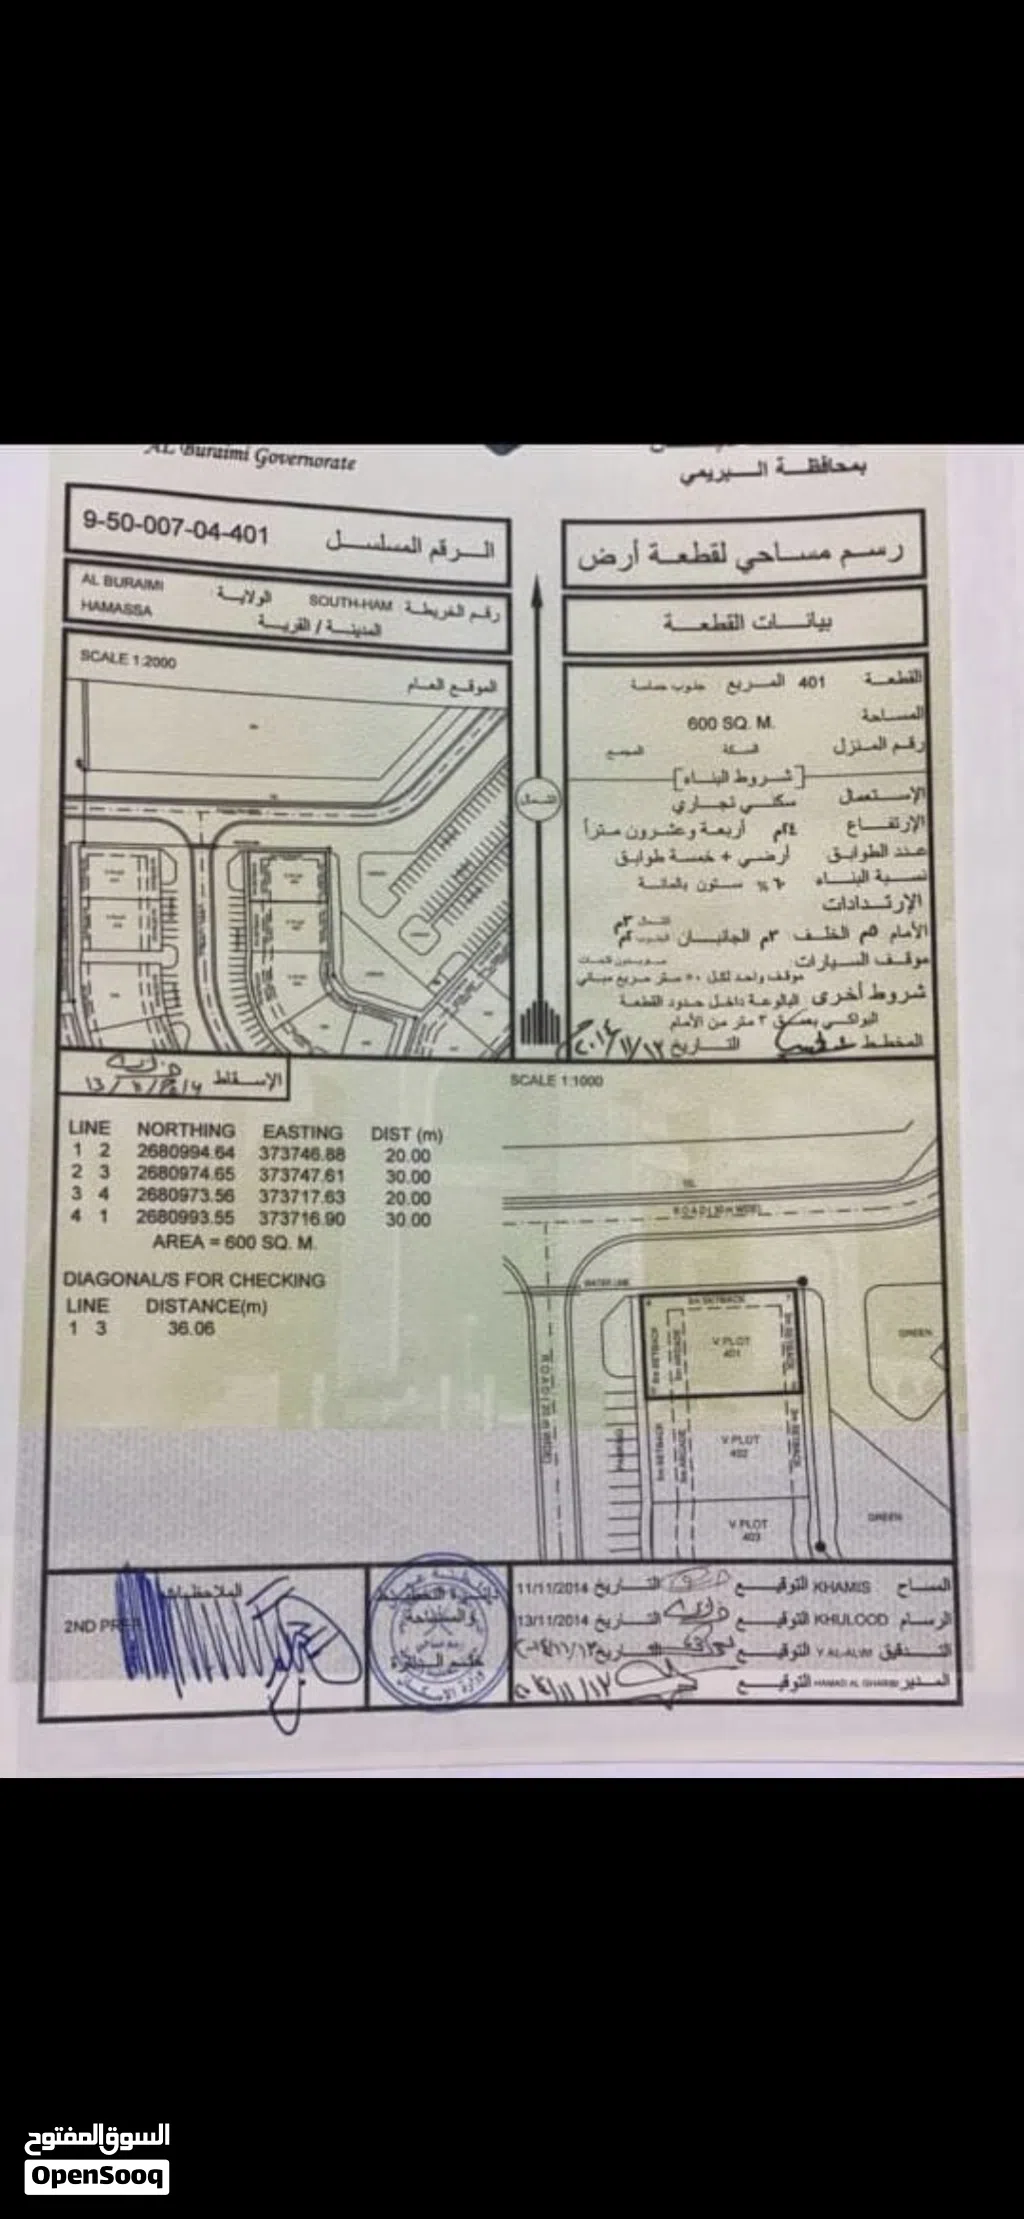 AL Buraimi Governorate
بمحافظة البريمي
9-50-007-04-401 الرقم المسلسل
رسم مساحي لقطعة أرض
AL BURAIMI الولاية SOUTH-HAM رقم الخريطة
HAMASSA المدينة / القرية
بيانات القطعة
SCALE 1:2000
الموقع العام
القطعة 401 المربع جنوب حماسة
المساحة 600 SQ. M.
رقم المنزل السكة المجمع
[شروط البناء]
الإستعمال سكني تجاري
الإرتفاع ٢٤م أربعة وعشرون متراً
عدد الطوابق أرضي + خمسة طوابق
نسبة البناء ٦٠ % ستون بالمائة
الإرتدادات
الأمام ٥م الخلف ٣م الجانبان
موقف السيارات:
موقف واحد لكل ٥٠ متر مربع مباني
شروط أخرى البالوعة داخل حدود القطعة
البواكي بعمق ٣ متر من الأمام
المخطط التاريخ ٢٠١٤/١١/١٣
الشمال
الإسقاط
SCALE 1:1000
LINE NORTHING EASTING DIST (m)
1 2 2680994.64 373746.88 20.00
2 3 2680974.65 373747.61 30.00
3 4 2680973.56 373717.63 20.00
4 1 2680993.55 373716.90 30.00
AREA = 600 SQ. M.
DIAGONAL/S FOR CHECKING
LINE DISTANCE(m)
1 3 36.06
WATER LINE
V.PLOT
401
V.PLOT
402
V.PLOT
403
GREEN
GREEN
PARKING
الملاحظات
2ND PREP
المساح KHAMIS التوقيع التاريخ 11/11/2014
الرسام KHULOOD التوقيع التاريخ 13/11/2014
التدقيق Y AL-ALWI التوقيع التاريخ
المدير HAMAD AL GHARIBI التوقيع
السوق المفتوح
OpenSooq